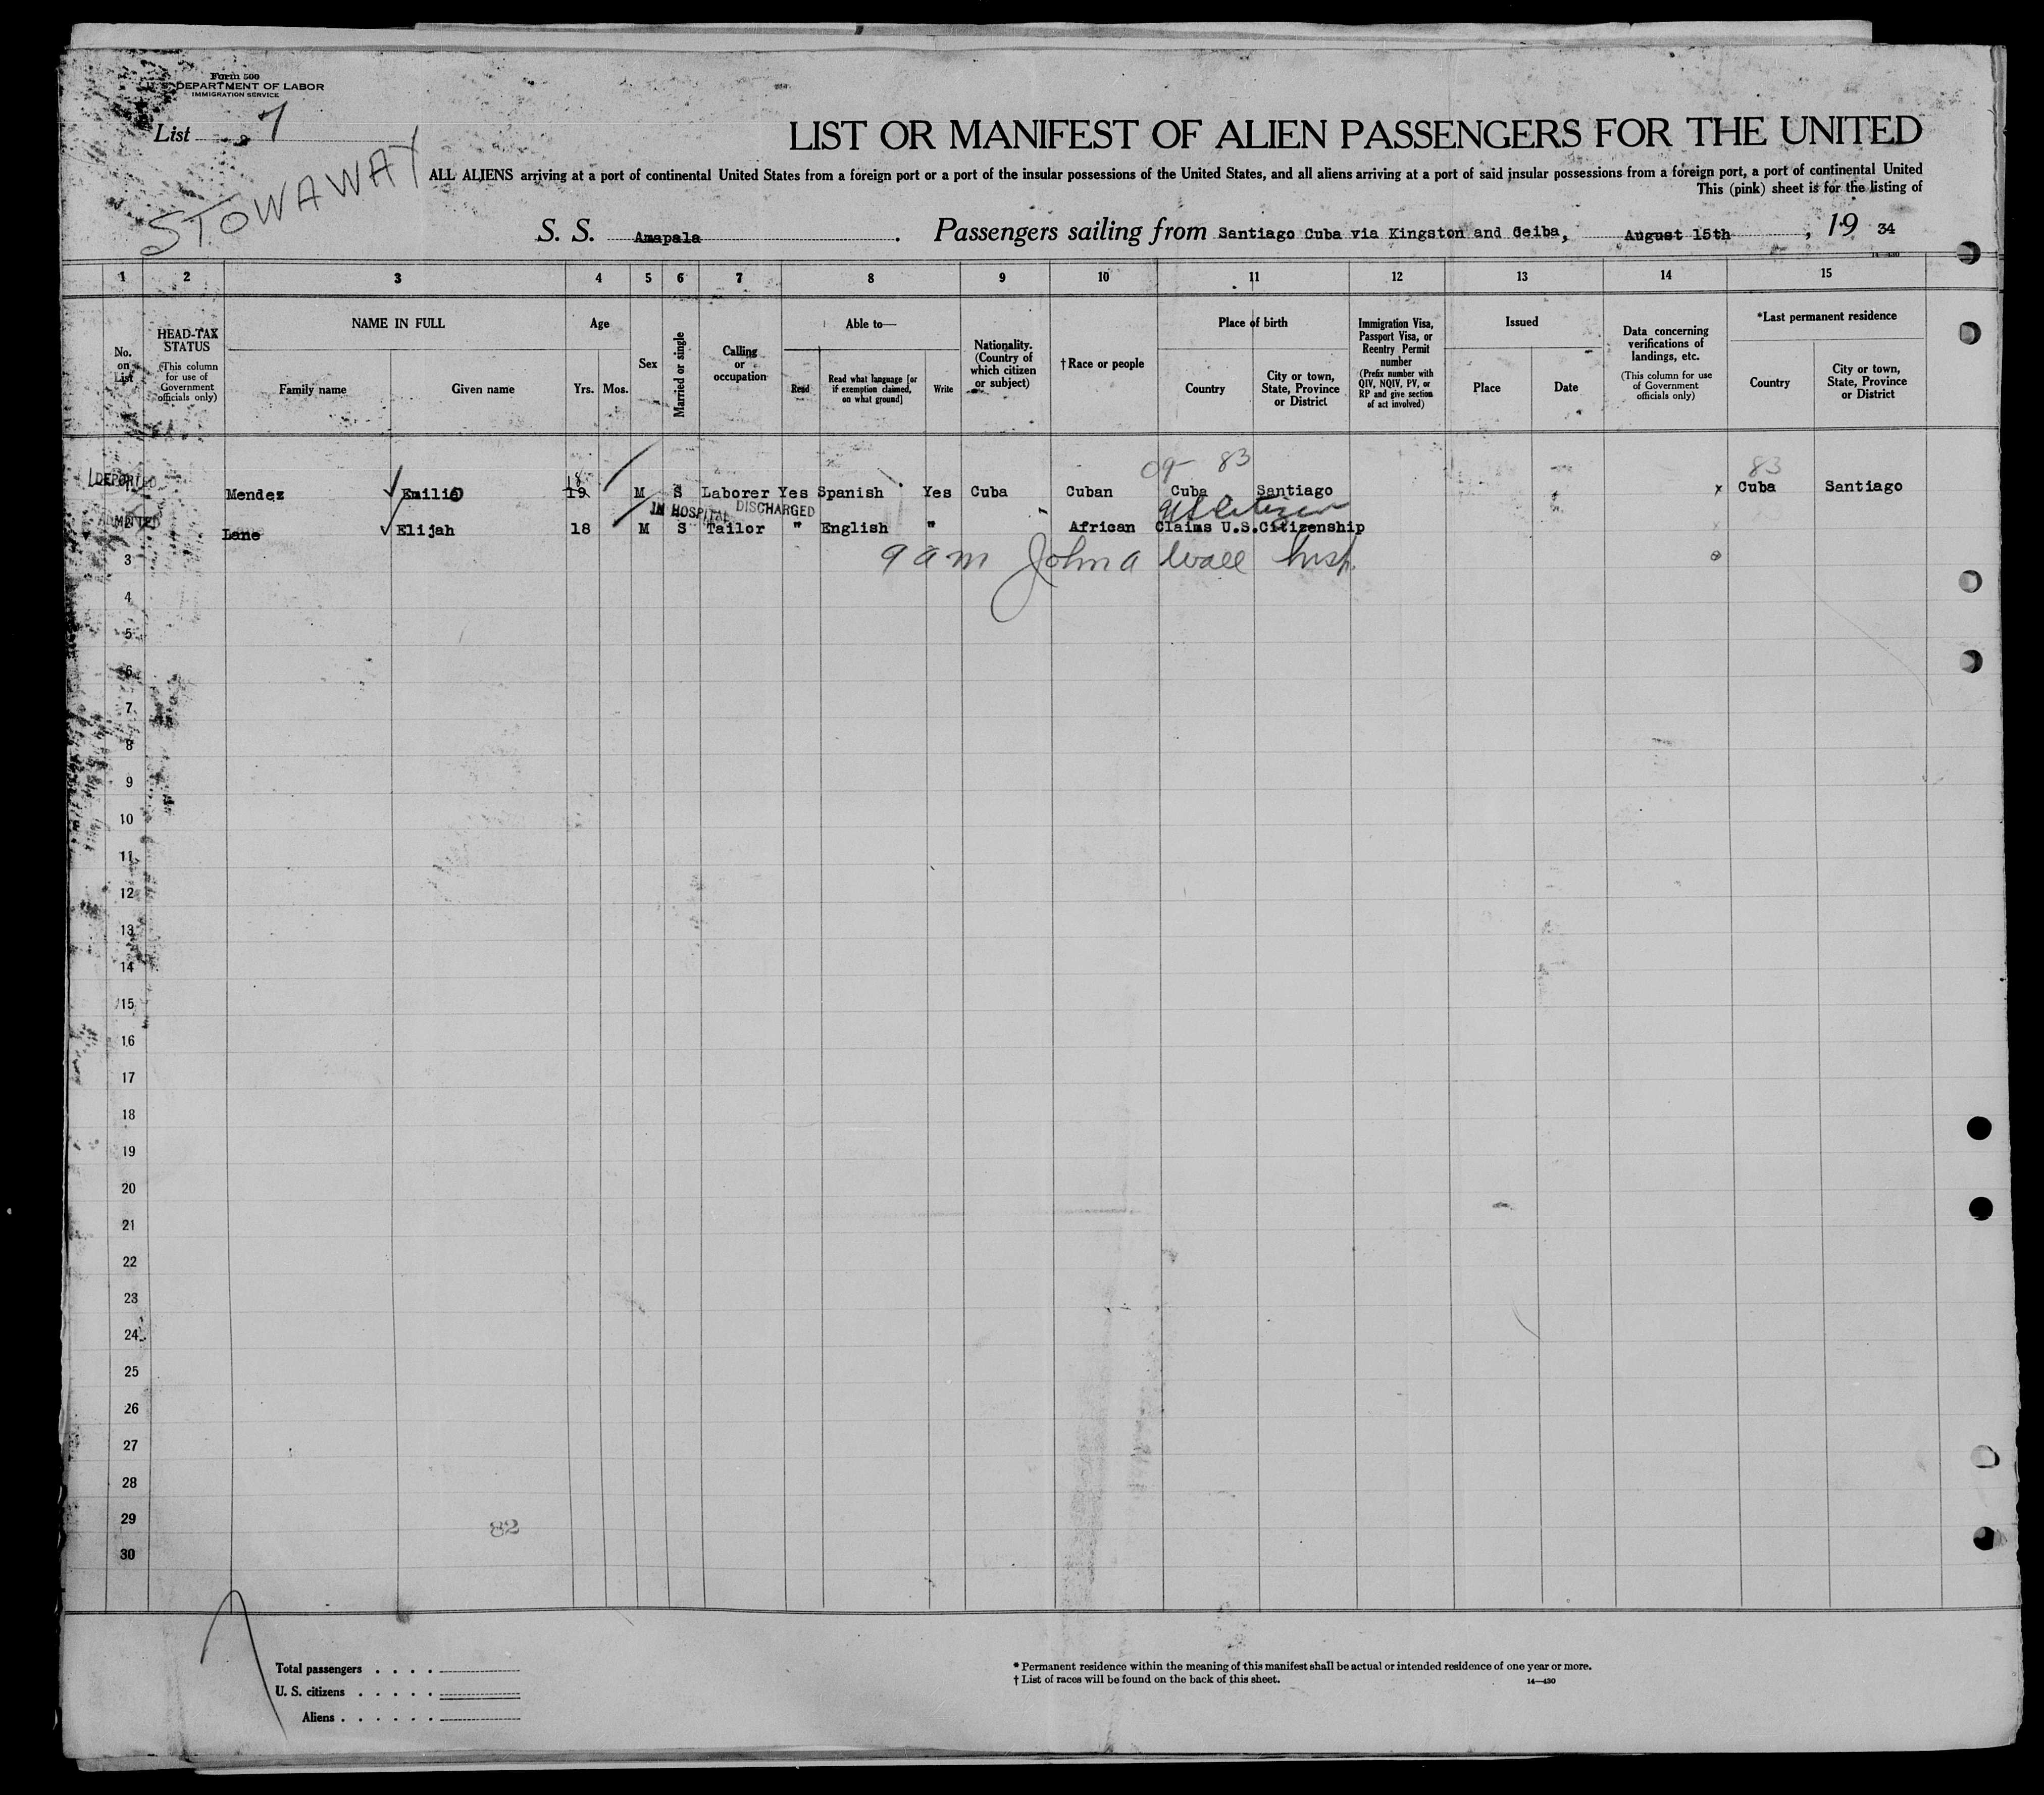 Form 500
U. S. DEPARTMENT OF LABOR
IMMIGRATION SERVICE
List 7
STOWAWAY
LIST OR MANIFEST OF ALIEN PASSENGERS FOR THE UNITED
ALL ALIENS arriving at a port of continental United States from a foreign port or a port of the insular possessions of the United States, and all aliens arriving at a port of said insular possessions from a foreign port, a port of continental United
This (pink) sheet is for the listing of
S. S. Amapala. Passengers sailing from Santiago Cuba via Kingston and Ceiba, August 15th, 1934
14—430
1 2 3 4 5 6 7 8 9 10 11 12 13 14 15
No. on List
HEAD-TAX STATUS
(This column for use of Government officials only)
NAME IN FULL
Family name Given name
Age
Yrs. Mos.
Sex
Married or single
Calling or occupation
Able to—
Read
Read what language [or if exemption claimed, on what ground]
Write
Nationality. (Country of which citizen or subject)
†Race or people
Place of birth
Country
City or town, State, Province or District
Immigration Visa, Passport Visa, or Reentry Permit number
(Prefix number with QIV, NQIV, PV, or RP and give section of act involved)
Issued
Place Date
Data concerning verifications of landings, etc.
(This column for use of Government officials only)
*Last permanent residence
Country
City or town, State, Province or District
09- 83 83
DEPORTED
18
Mendez Emilio 19 M S Laborer Yes Spanish Yes Cuba Cuban Cuba Santiago x Cuba Santiago
IN HOSPITAL DISCHARGED
US Citizen
ADMITTED
2 Lane Elijah 18 M S Tailor " English " African Claims U.S.Citizenship
9 am John a Wall Insp.
3
4
5
6
7
8
9
10
11
12
13
14
15
16
17
18
19
20
21
22
23
24
25
26
27
28
29
82
30
Total passengers . . . .
U. S. citizens . . . . .
Aliens . . . . . .
* Permanent residence within the meaning of this manifest shall be actual or intended residence of one year or more.
† List of races will be found on the back of this sheet.
14—430